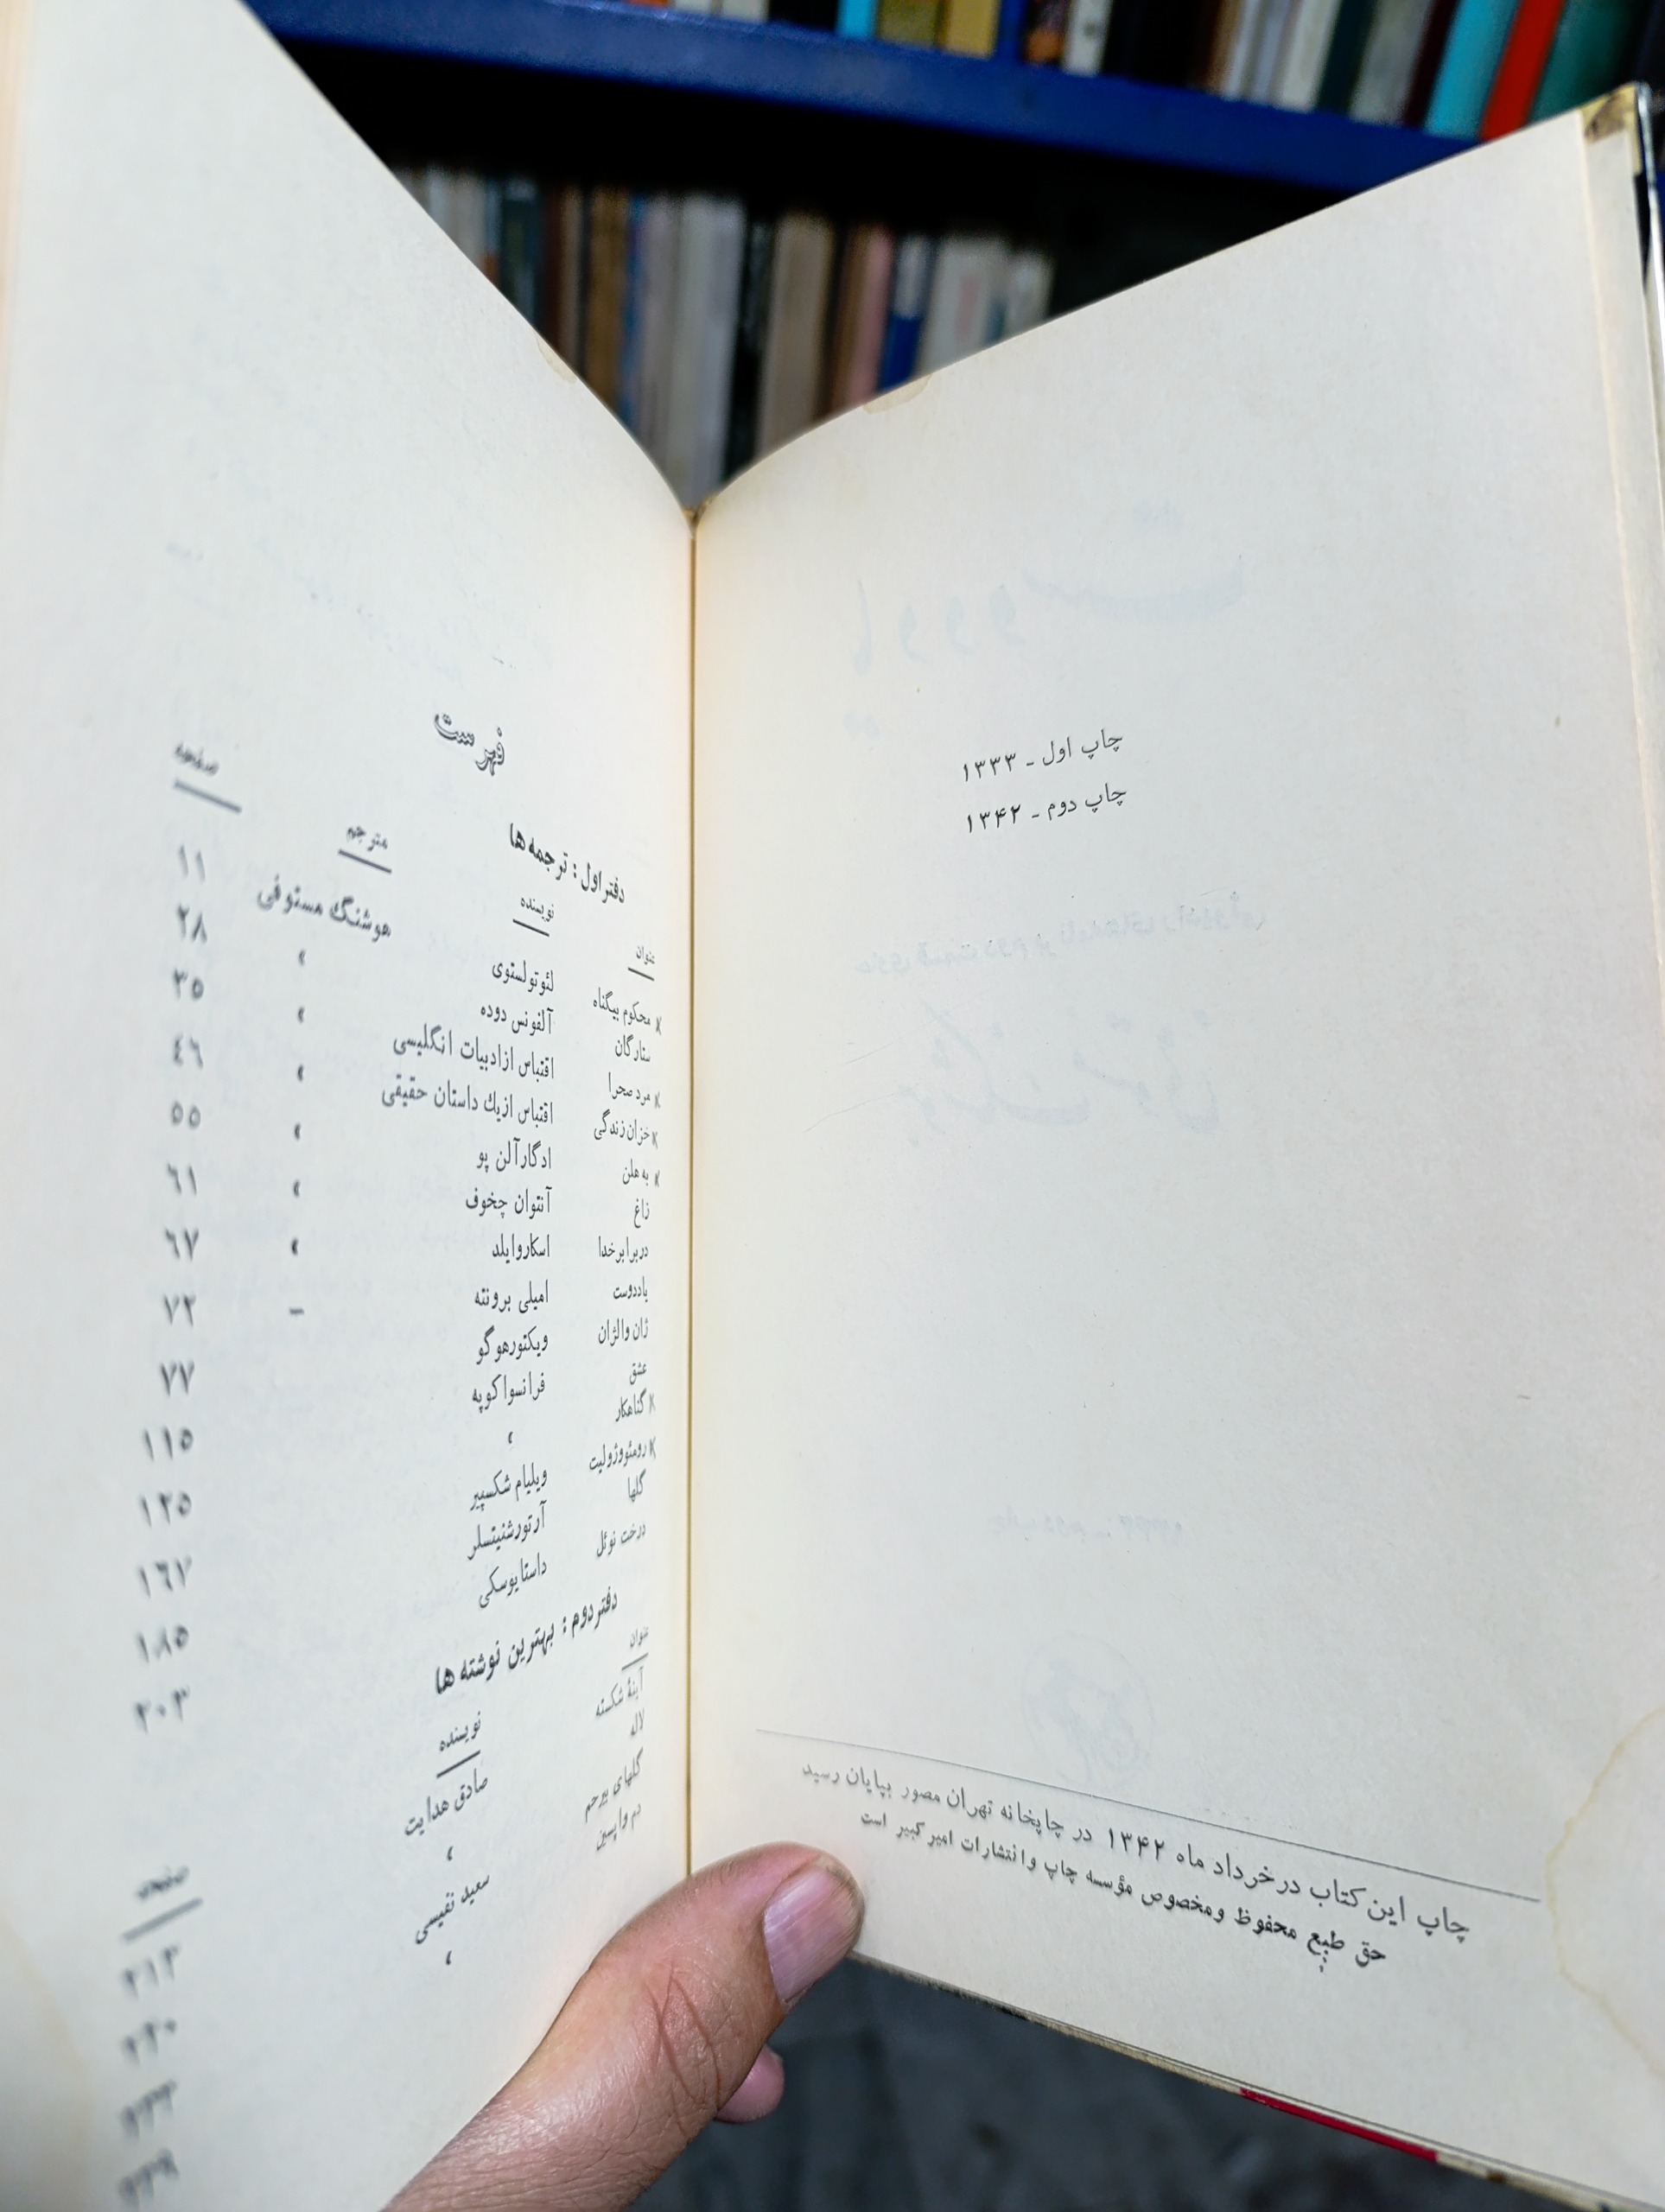 چاپ اول ـ ۱۳۳۳
چاپ دوم ـ ۱۳۴۲
چاپ این کتاب در خرداد ماه ۱۳۴۲ در چاپخانه تهران مصور بپایان رسید
حق طبع محفوظ ومخصوص مؤسسه چاپ وانتشارات امیرکبیر است
فهرست
دفتر اول : ترجمه ها
عنوان نویسنده مترجم صفحه
محکوم بیگناه لئوتولستوی هوشنگ مستوفی ۱۱
ستارگان آلفونس دوده » ۲۸
مرد صحرا اقتباس از ادبیات انگلیسی » ۳۵
خزان زندگی اقتباس ازیك داستان حقیقی » ٤٦
به هلن ادگارآلن پو » ۵۵
زاغ آنتوان چخوف » ٦۱
دربرابرخدا اسکاروایلد » ٦۷
یاددوست امیلی برونته - ۷۲
ژان والژان ویکتورهوگو ۷۷
عشق فرانسوا کوپه ۱۱۵
گناهکار » ۱۲۵
رومئووژولیت ویلیام شکسپیر ۱٦۷
گلها آرتورشنیتسلر ۱۸۵
درخت نوئل داستایوسکی ۲۰۳
دفتر دوم : بهترین نوشته ها
عنوان نویسنده صفحه
آینهٔ شکسته صادق هدایت ۲۱۳
لاله »
گلهای بیرحم سعید نفیسی
دم واپسین »